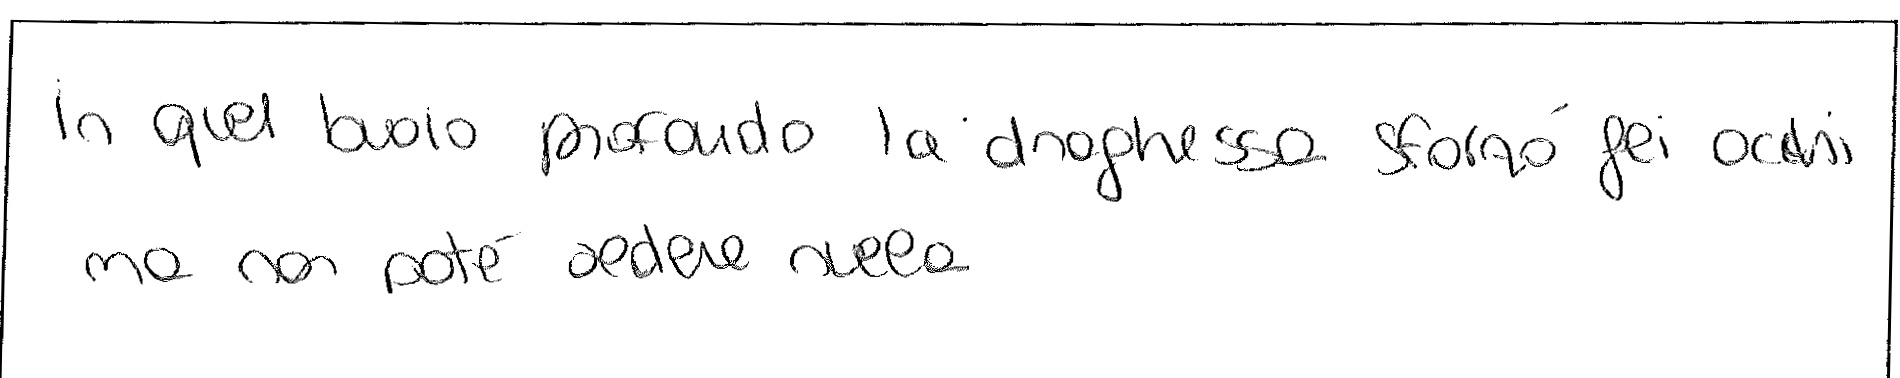 in quel buoio profondo la draghessa sforzó gli occhi
ma non poté vedere nulla